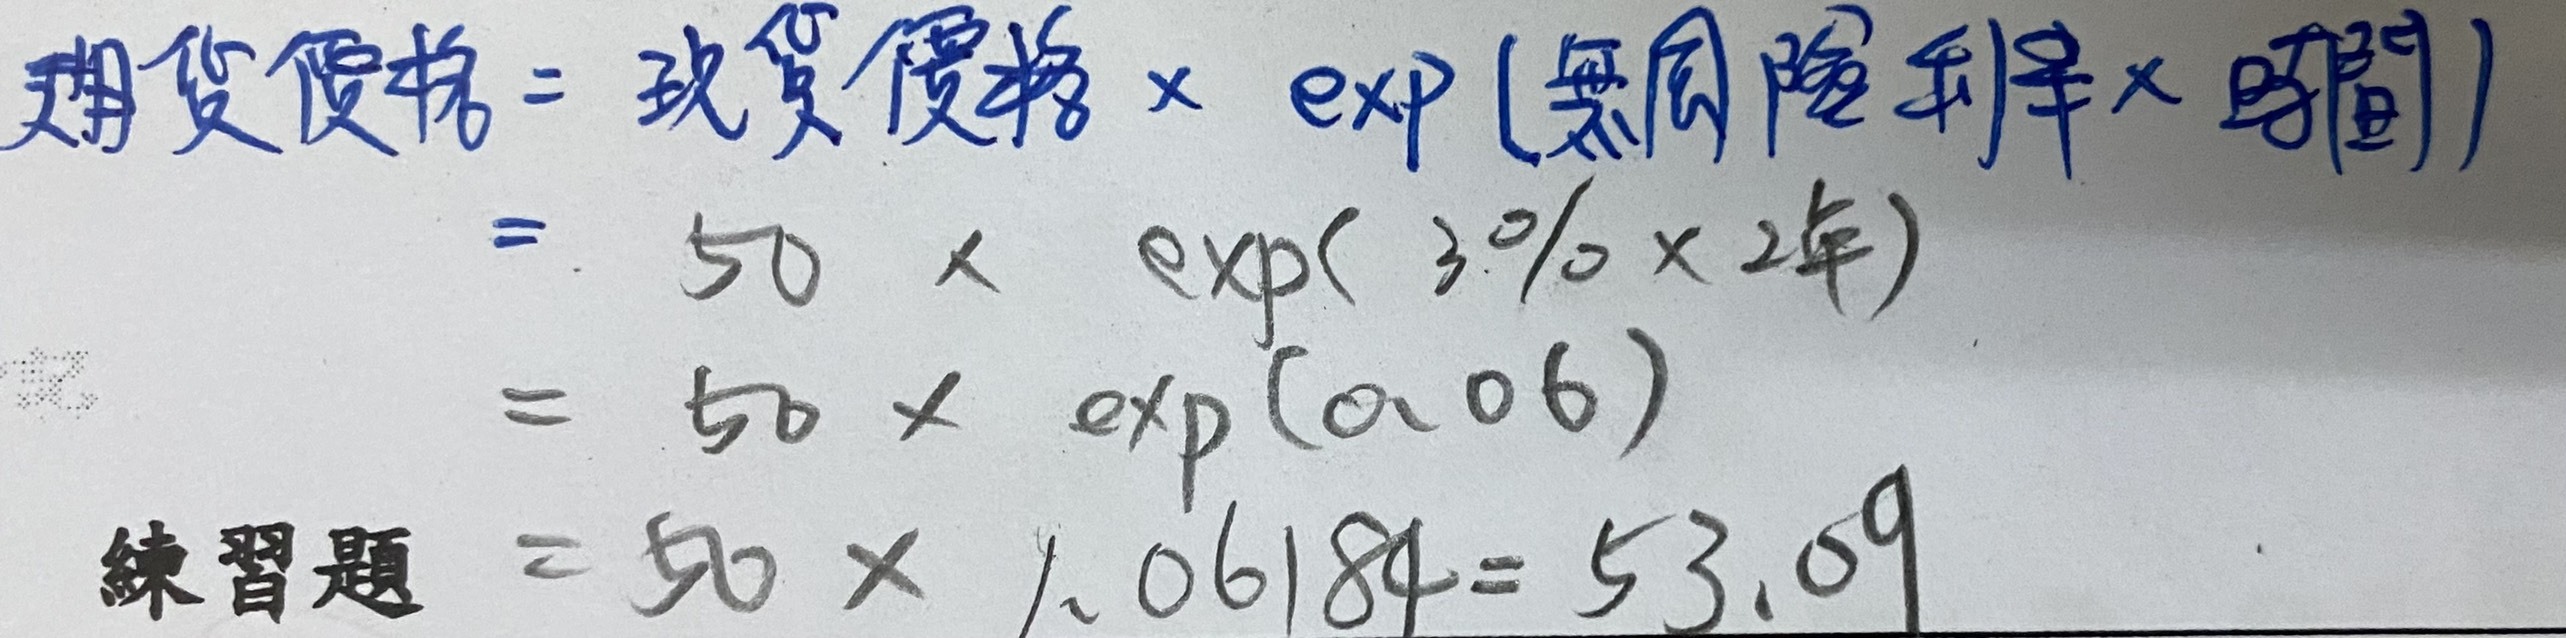 期貨價格 = 現貨價格 × exp (無風險利率 × 時間)
= 50 × exp( 3% × 2年)
= 50 × exp(0.06)
練習題 = 50 × 1.06184 = 53.09